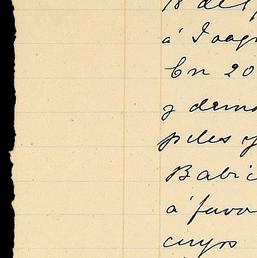 18 de
á Joaq
En 20
y dem
piles y
Babi
á favo
cuyos